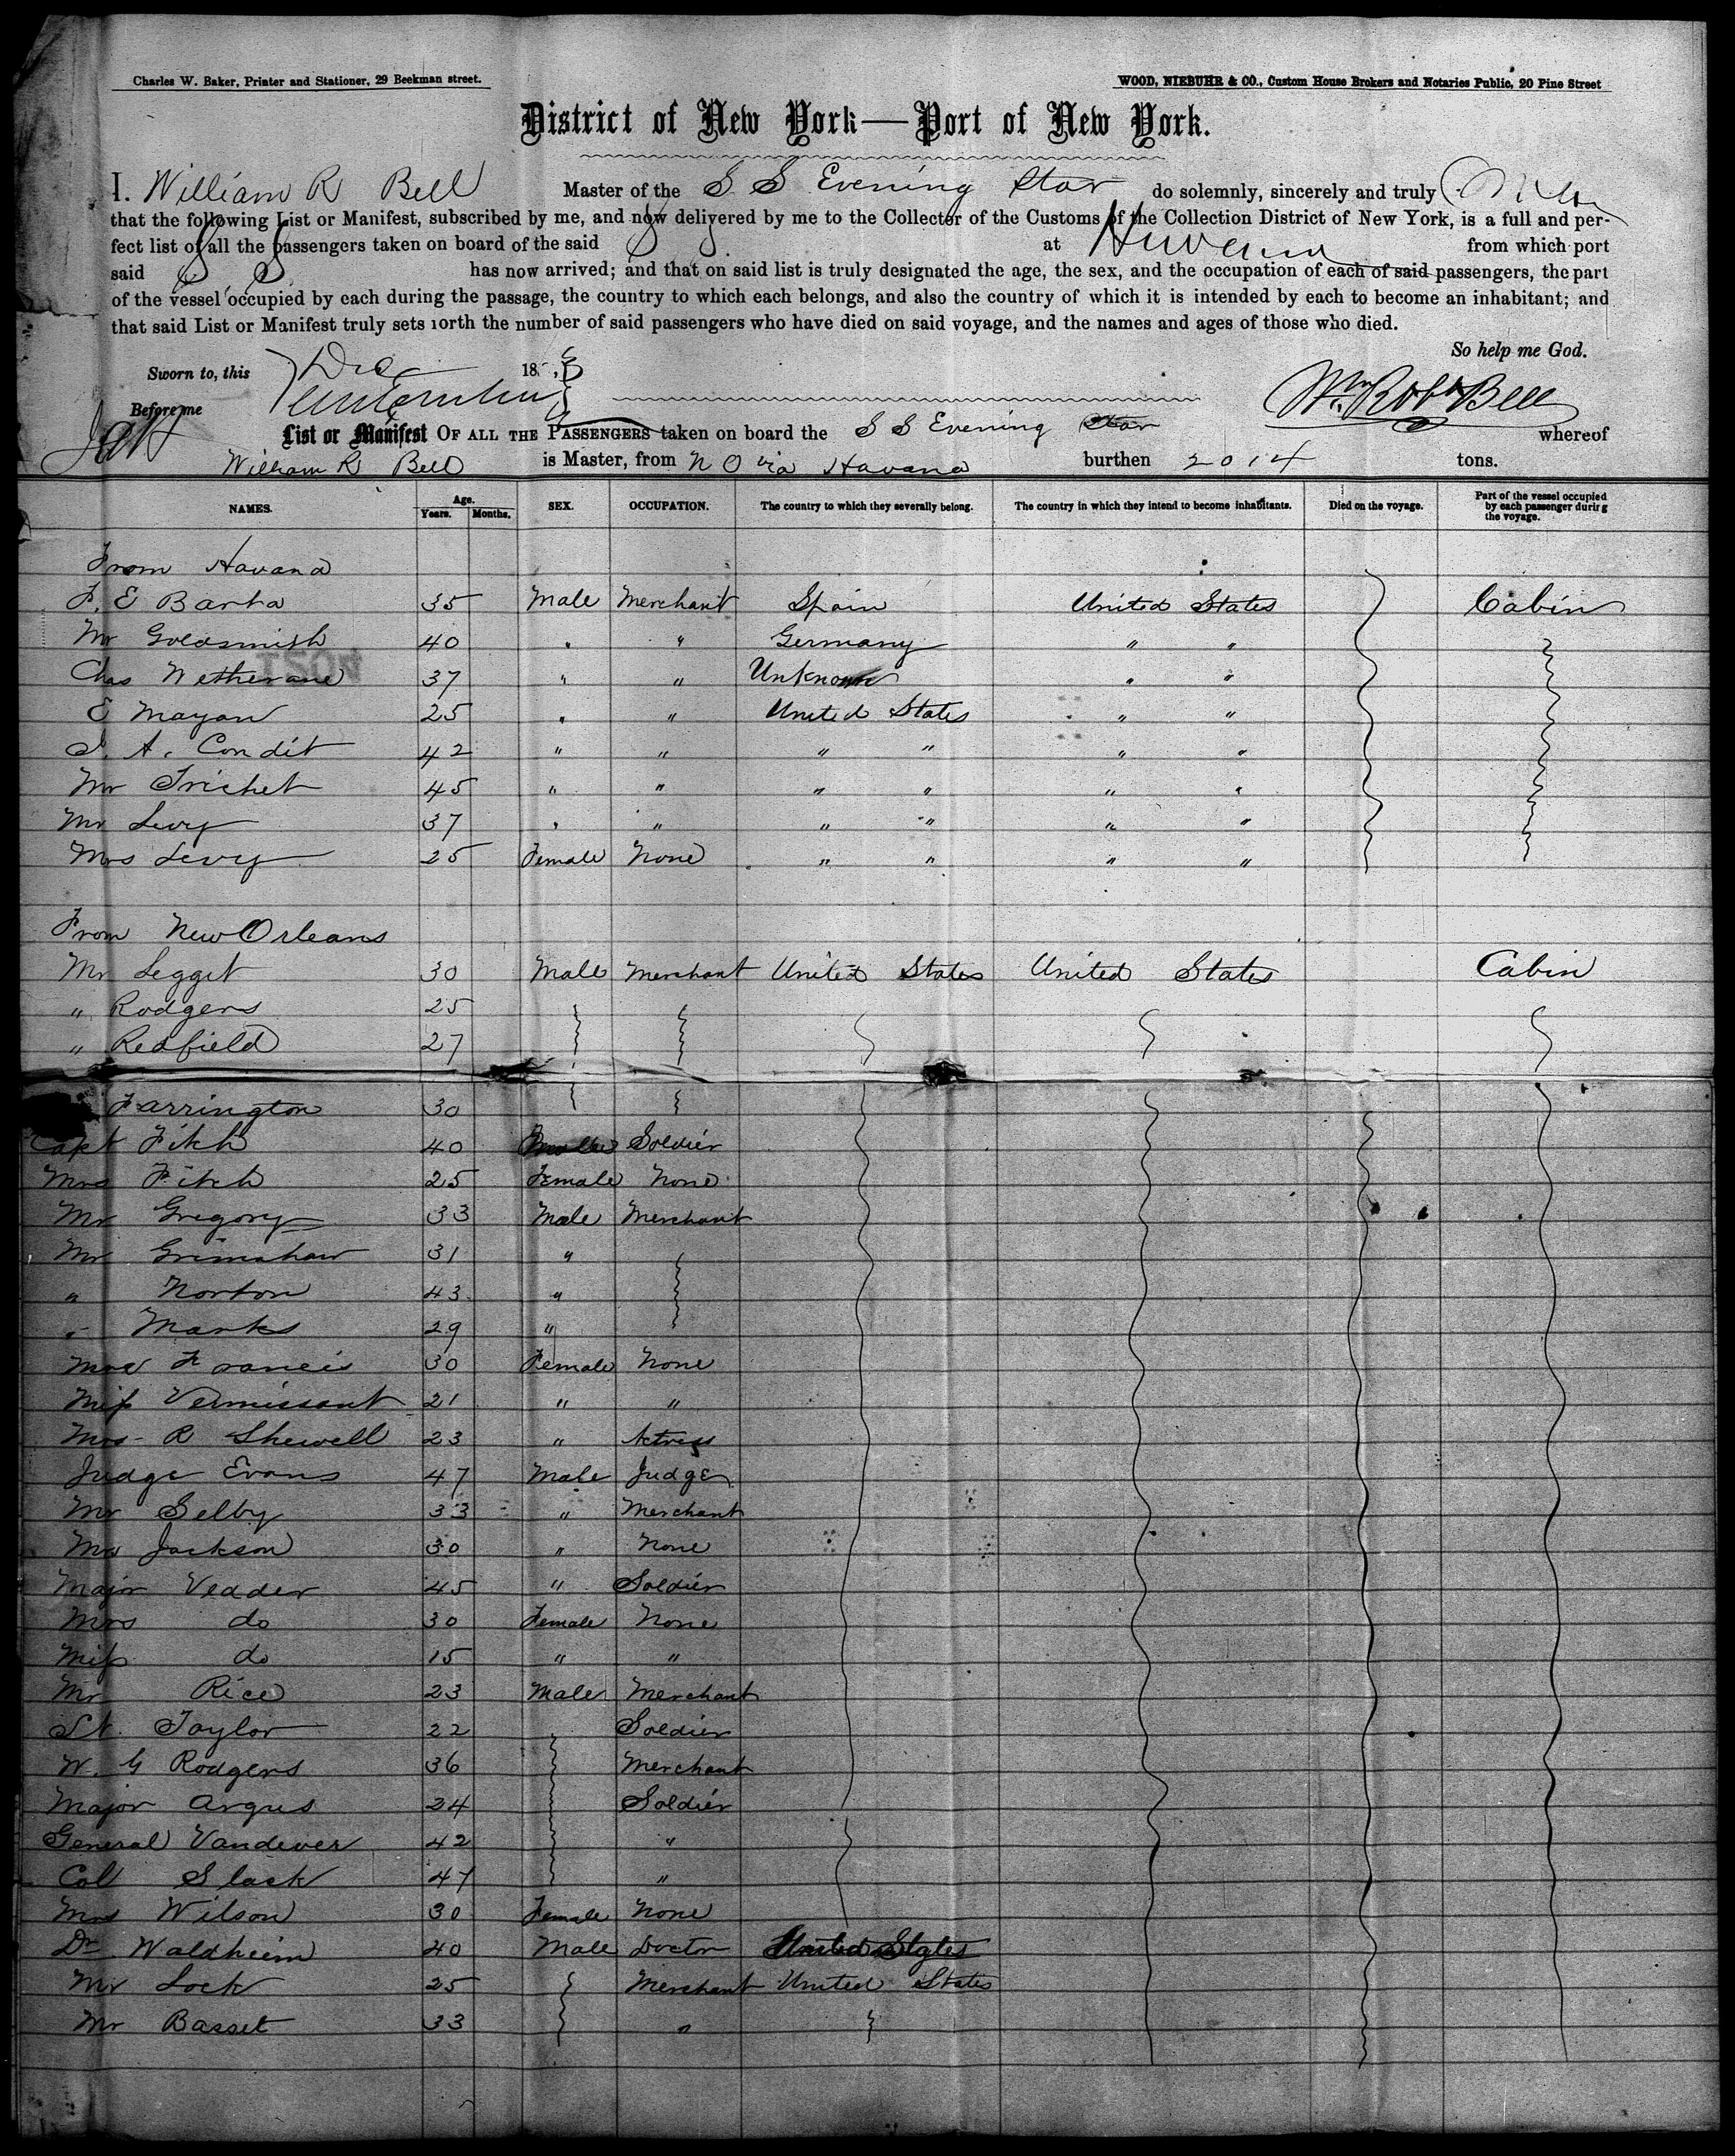 Charles W. Baker, Printer and Stationer, 29 Beekman street.
WOOD, NIEBUHR & CO., Custom House Brokers and Notaries Public, 20 Pine Street
District of New York—Port of New York.
I, William R Bell Master of the S S Evening Star do solemnly, sincerely and truly
that the following List or Manifest, subscribed by me, and now delivered by me to the Collector of the Customs of the Collection District of New York, is a full and per-
fect list of all the passengers taken on board of the said S S at Havana from which port
said S S has now arrived; and that on said list is truly designated the age, the sex, and the occupation of each of said passengers, the part
of the vessel occupied by each during the passage, the country to which each belongs, and also the country of which it is intended by each to become an inhabitant; and
that said List or Manifest truly sets forth the number of said passengers who have died on said voyage, and the names and ages of those who died.
So help me God.
Sworn to, this Dec 186
Before me
Wm Robt Bell
List or Manifest OF ALL THE PASSENGERS taken on board the S S Evening Star whereof
William R Bell is Master, from N O via Havana burthen 2014 tons.
NAMES. Age. Years. Months. SEX. OCCUPATION. The country to which they severally belong. The country in which they intend to become inhabitants. Died on the voyage. Part of the vessel occupied by each passenger during the voyage.
From Havana
F. E Barta 35 Male Merchant Spain United States Cabin
Mr Goldsmish 40 " " Germany " "
Chas Wetherane 37 " " Unknown " "
E Mayan 25 " " United States " "
J. A. Condit 42 " " " " " "
Mr Trichet 45 " " " " " "
Mr Levy 37 " " " " " "
Mrs Levy 25 Female None " " " "
From New Orleans
Mr Legget 30 Male Merchant United States United States Cabin
" Rodgers 25
" Redfield 27
Farrington 30
Capt Fitch 40 Soldier
Mrs Fitch 25 Female None
Mr Gregory 33 Male Merchant
Mr Grimshaw 31 "
" Norton 43 "
" Marks 29 "
Mrs Francis 30 Female None
Miss Vermissant 21 " "
Mrs R Shewell 23 " Actress
Judge Evans 47 Male Judge
Mr Selby 33 " Merchant
Mr Jackson 30 " None
Major Vedder 45 " Soldier
Mrs do 30 Female None
Miss do 15 " "
Mr Rice 23 Male Merchant
Lt. Taylor 22 Soldier
W. G Rodgers 36 Merchant
Major Argus 24 Soldier
General Vandever 42 "
Col Slack 47 "
Mrs Wilson 30 Female None
Dr Waldheim 40 Male Doctor United States
Mr Lock 25 Merchant United States
Mr Basset 33 "